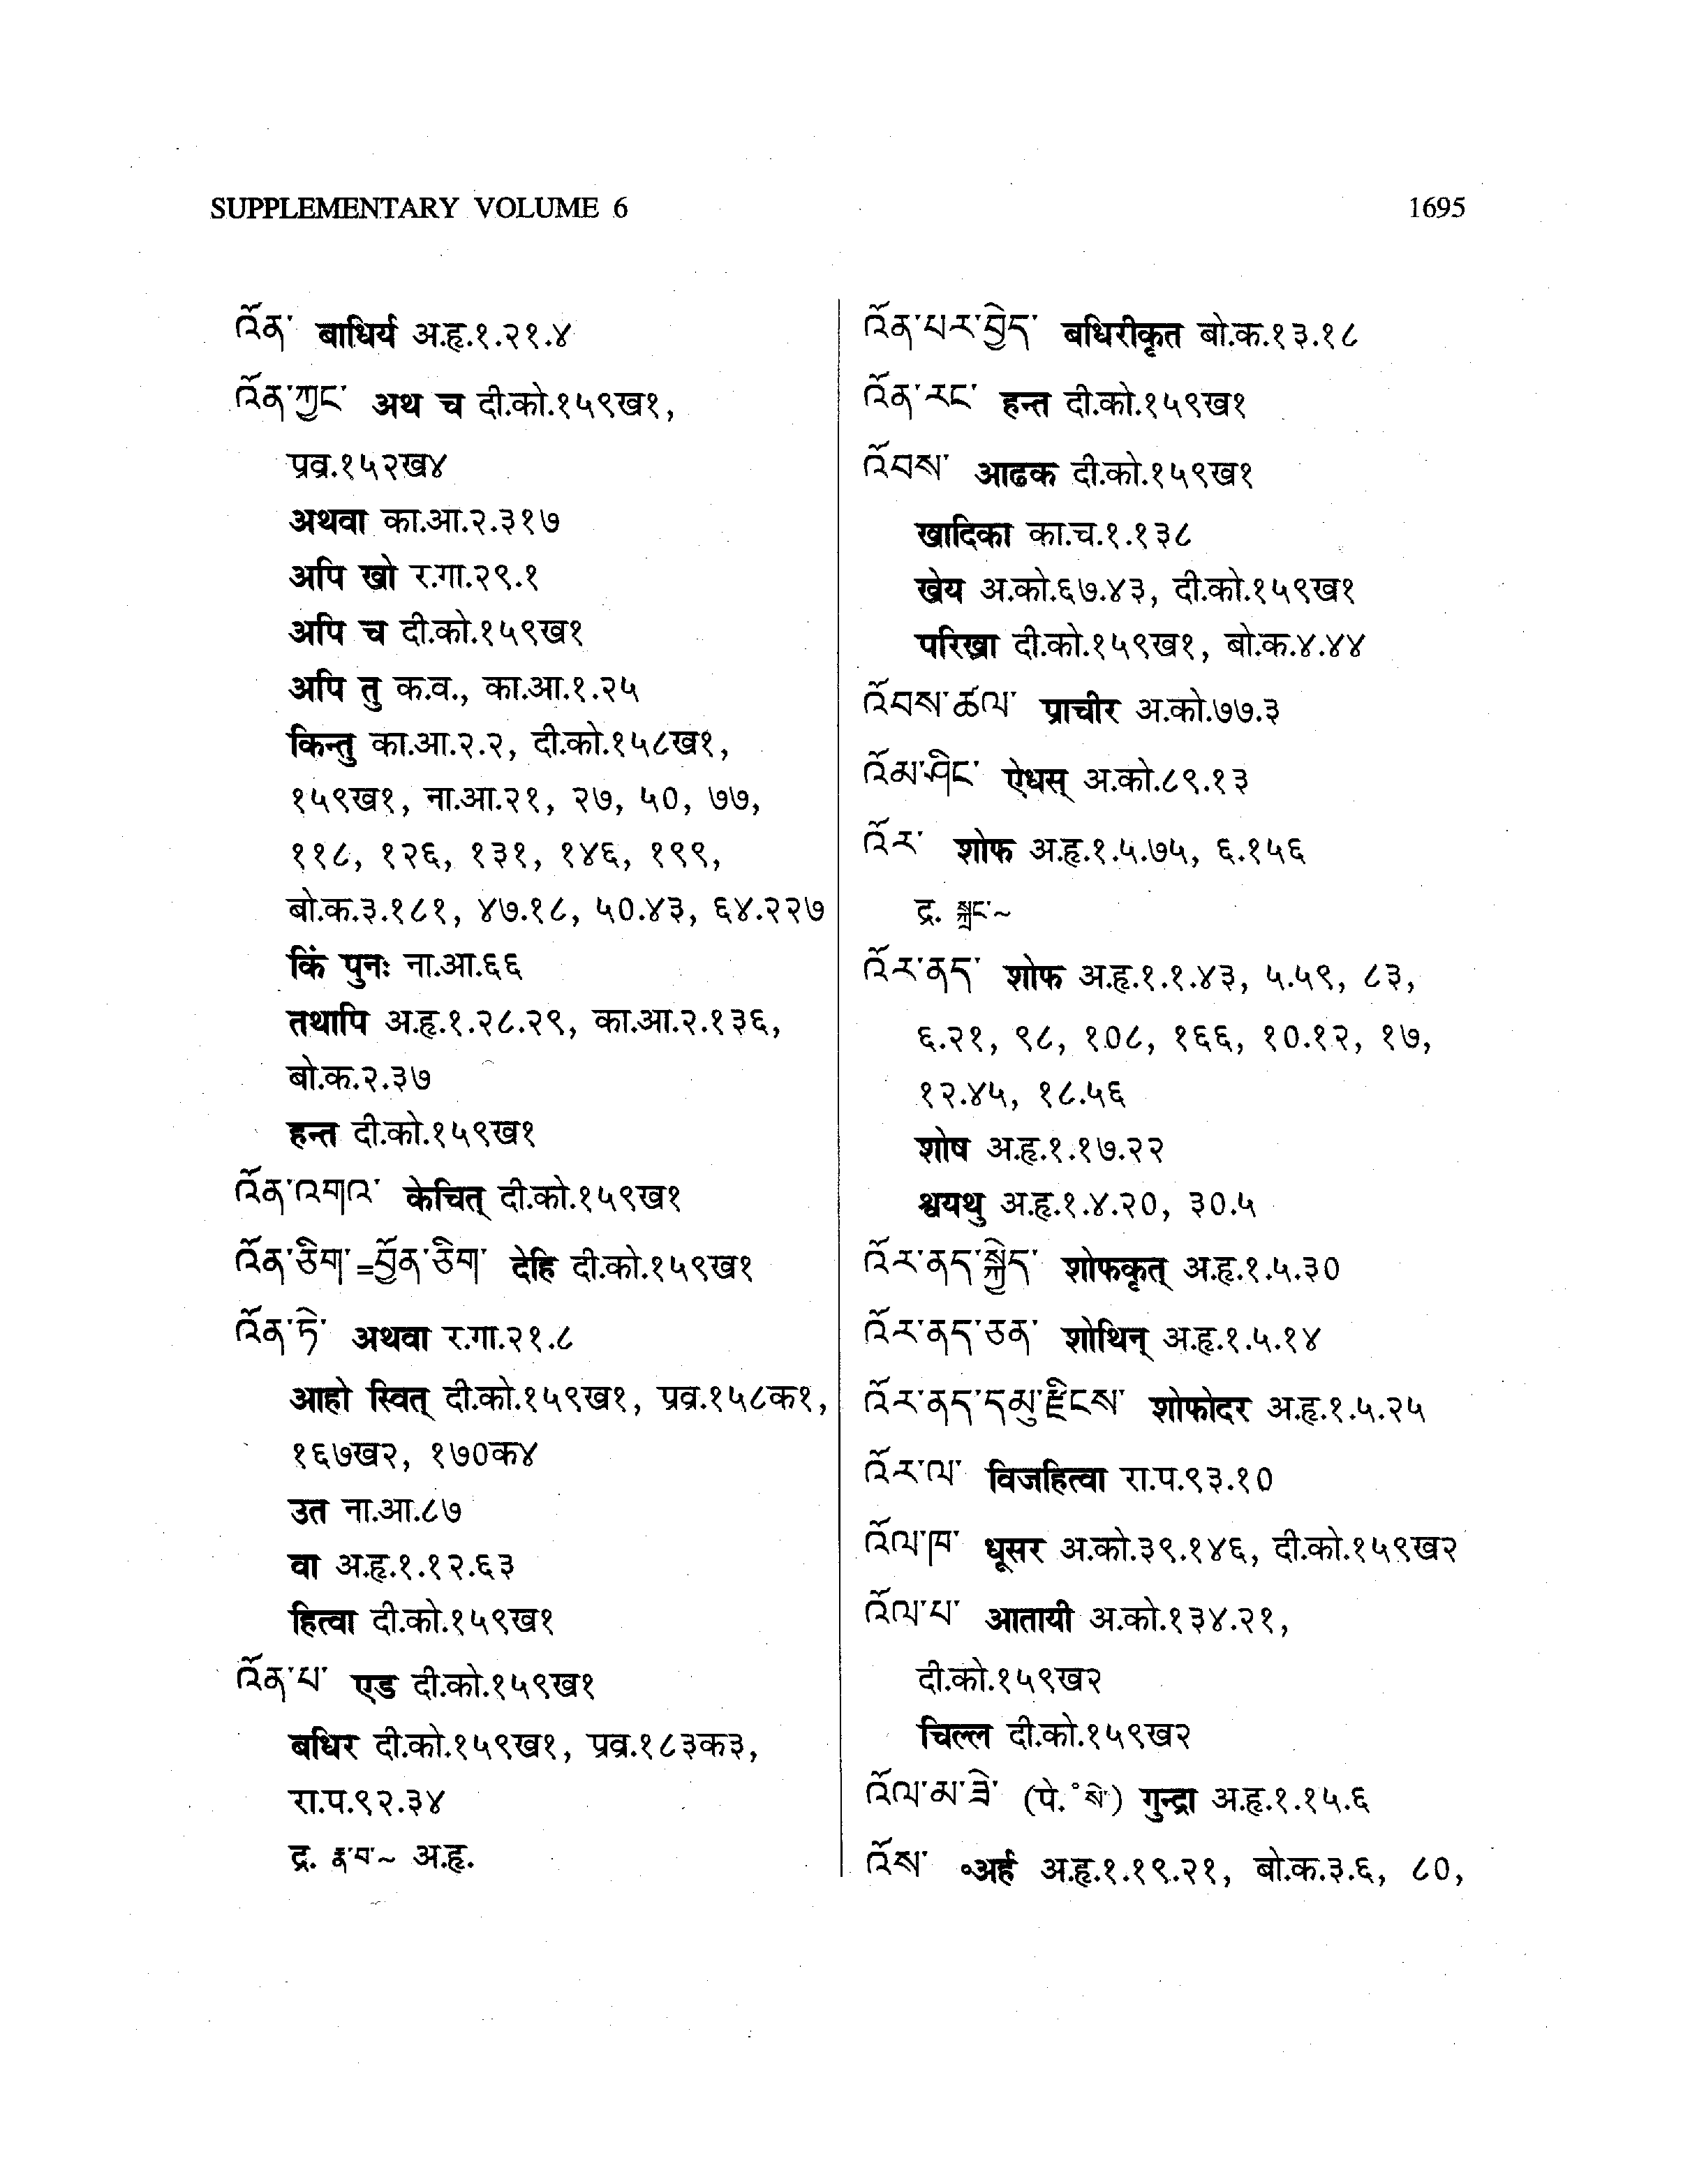 SUPPLEMENTARY VOLUME 6 1695
འོན་ बाधिर्य अ.हृ.१.२१.४
འོན་ཀྱང་ अथ च दी.को.१५९ख१,
प्रव्र.१५२ख४
अथवा का.आ.२.३१७
अपि खो र.गा.२९.१
अपि च दी.को.१५९ख१
अपि तु क.व., का.आ.१.२५
किन्तु का.आ.२.२, दी.को.१५८ख१,
१५९ख१, ना.आ.२१, २७, ५०, ७७,
११८, १२६, १३१, १४६, १९९,
बो.क.३.१८१, ४७.१८, ५०.४३, ६४.२२७
किं पुनः ना.आ.६६
तथापि अ.हृ.१.२८.२९, का.आ.२.१३६,
बो.क.२.३७
हन्त दी.को.१५९ख१
འོན་འགའ་ केचित् दी.को.१५९ख१
འོན་ཅིག་=བྱོན་ཅིག་ देहि दी.को.१५९ख१
འོན་ཏེ་ अथवा र.गा.२१.८
आहो स्वित् दी.को.१५९ख१, प्रव्र.१५८क१,
१६७ख२, १७०क४
उत ना.आ.८७
वा अ.हृ.१.१२.६३
हित्वा दी.को.१५९ख१
འོན་པ་ एड दी.को.१५९ख१
बधिर दी.को.१५९ख१, प्रव्र.१८३क३,
रा.प.९२.३४
द्र. རྣ་བ་~ अ.हृ.
འོན་པར་བྱེད་ बधिरीकृत बो.क.१३.१८
འོན་རང་ हन्त दी.को.१५९ख१
འོབས་ आढक दी.को.१५९ख१
खादिका का.च.१.१३८
खेय अ.को.६७.४३, दी.को.१५९ख१
परिखा दी.को.१५९ख१, बो.क.४.४४
འོབས་ཚལ་ प्राचीर अ.को.७७.३
འོམ་ཤིང་ ऐधस् अ.को.८९.१३
འོར་ शोफ अ.हृ.१.५.७५, ६.१५६
द्र. སྐྲང་~
འོར་ནད་ शोफ अ.हृ.१.१.४३, ५.५९, ८३,
६.२१, ९८, १०८, १६६, १०.१२, १७,
१२.४५, १८.५६
शोष अ.हृ.१.१७.२२
श्वयथु अ.हृ.१.४.२०, ३०.५
འོར་ནད་སྐྱེད་ शोफकृत् अ.हृ.१.५.३०
འོར་ནད་ཅན་ शोथिन् अ.हृ.१.५.१४
འོར་ནད་དམུ་རྫིངས་ शोफोदर अ.हृ.१.५.२५
འོར་ལ་ विजहित्वा रा.प.९३.१०
འོལ་ཁ་ धूसर अ.को.३९.१४६, दी.को.१५९ख२
འོལ་པ་ आतायी अ.को.१३४.२१,
दी.को.१५९ख२
चिल्ल दी.को.१५९ख२
འོལ་མ་ཟེ་ (पे.॰སེ་) गुन्द्रा अ.हृ.१.१५.६
འོས་ ॰अर्ह अ.हृ.१.१९.२१, बो.क.३.६, ८०,